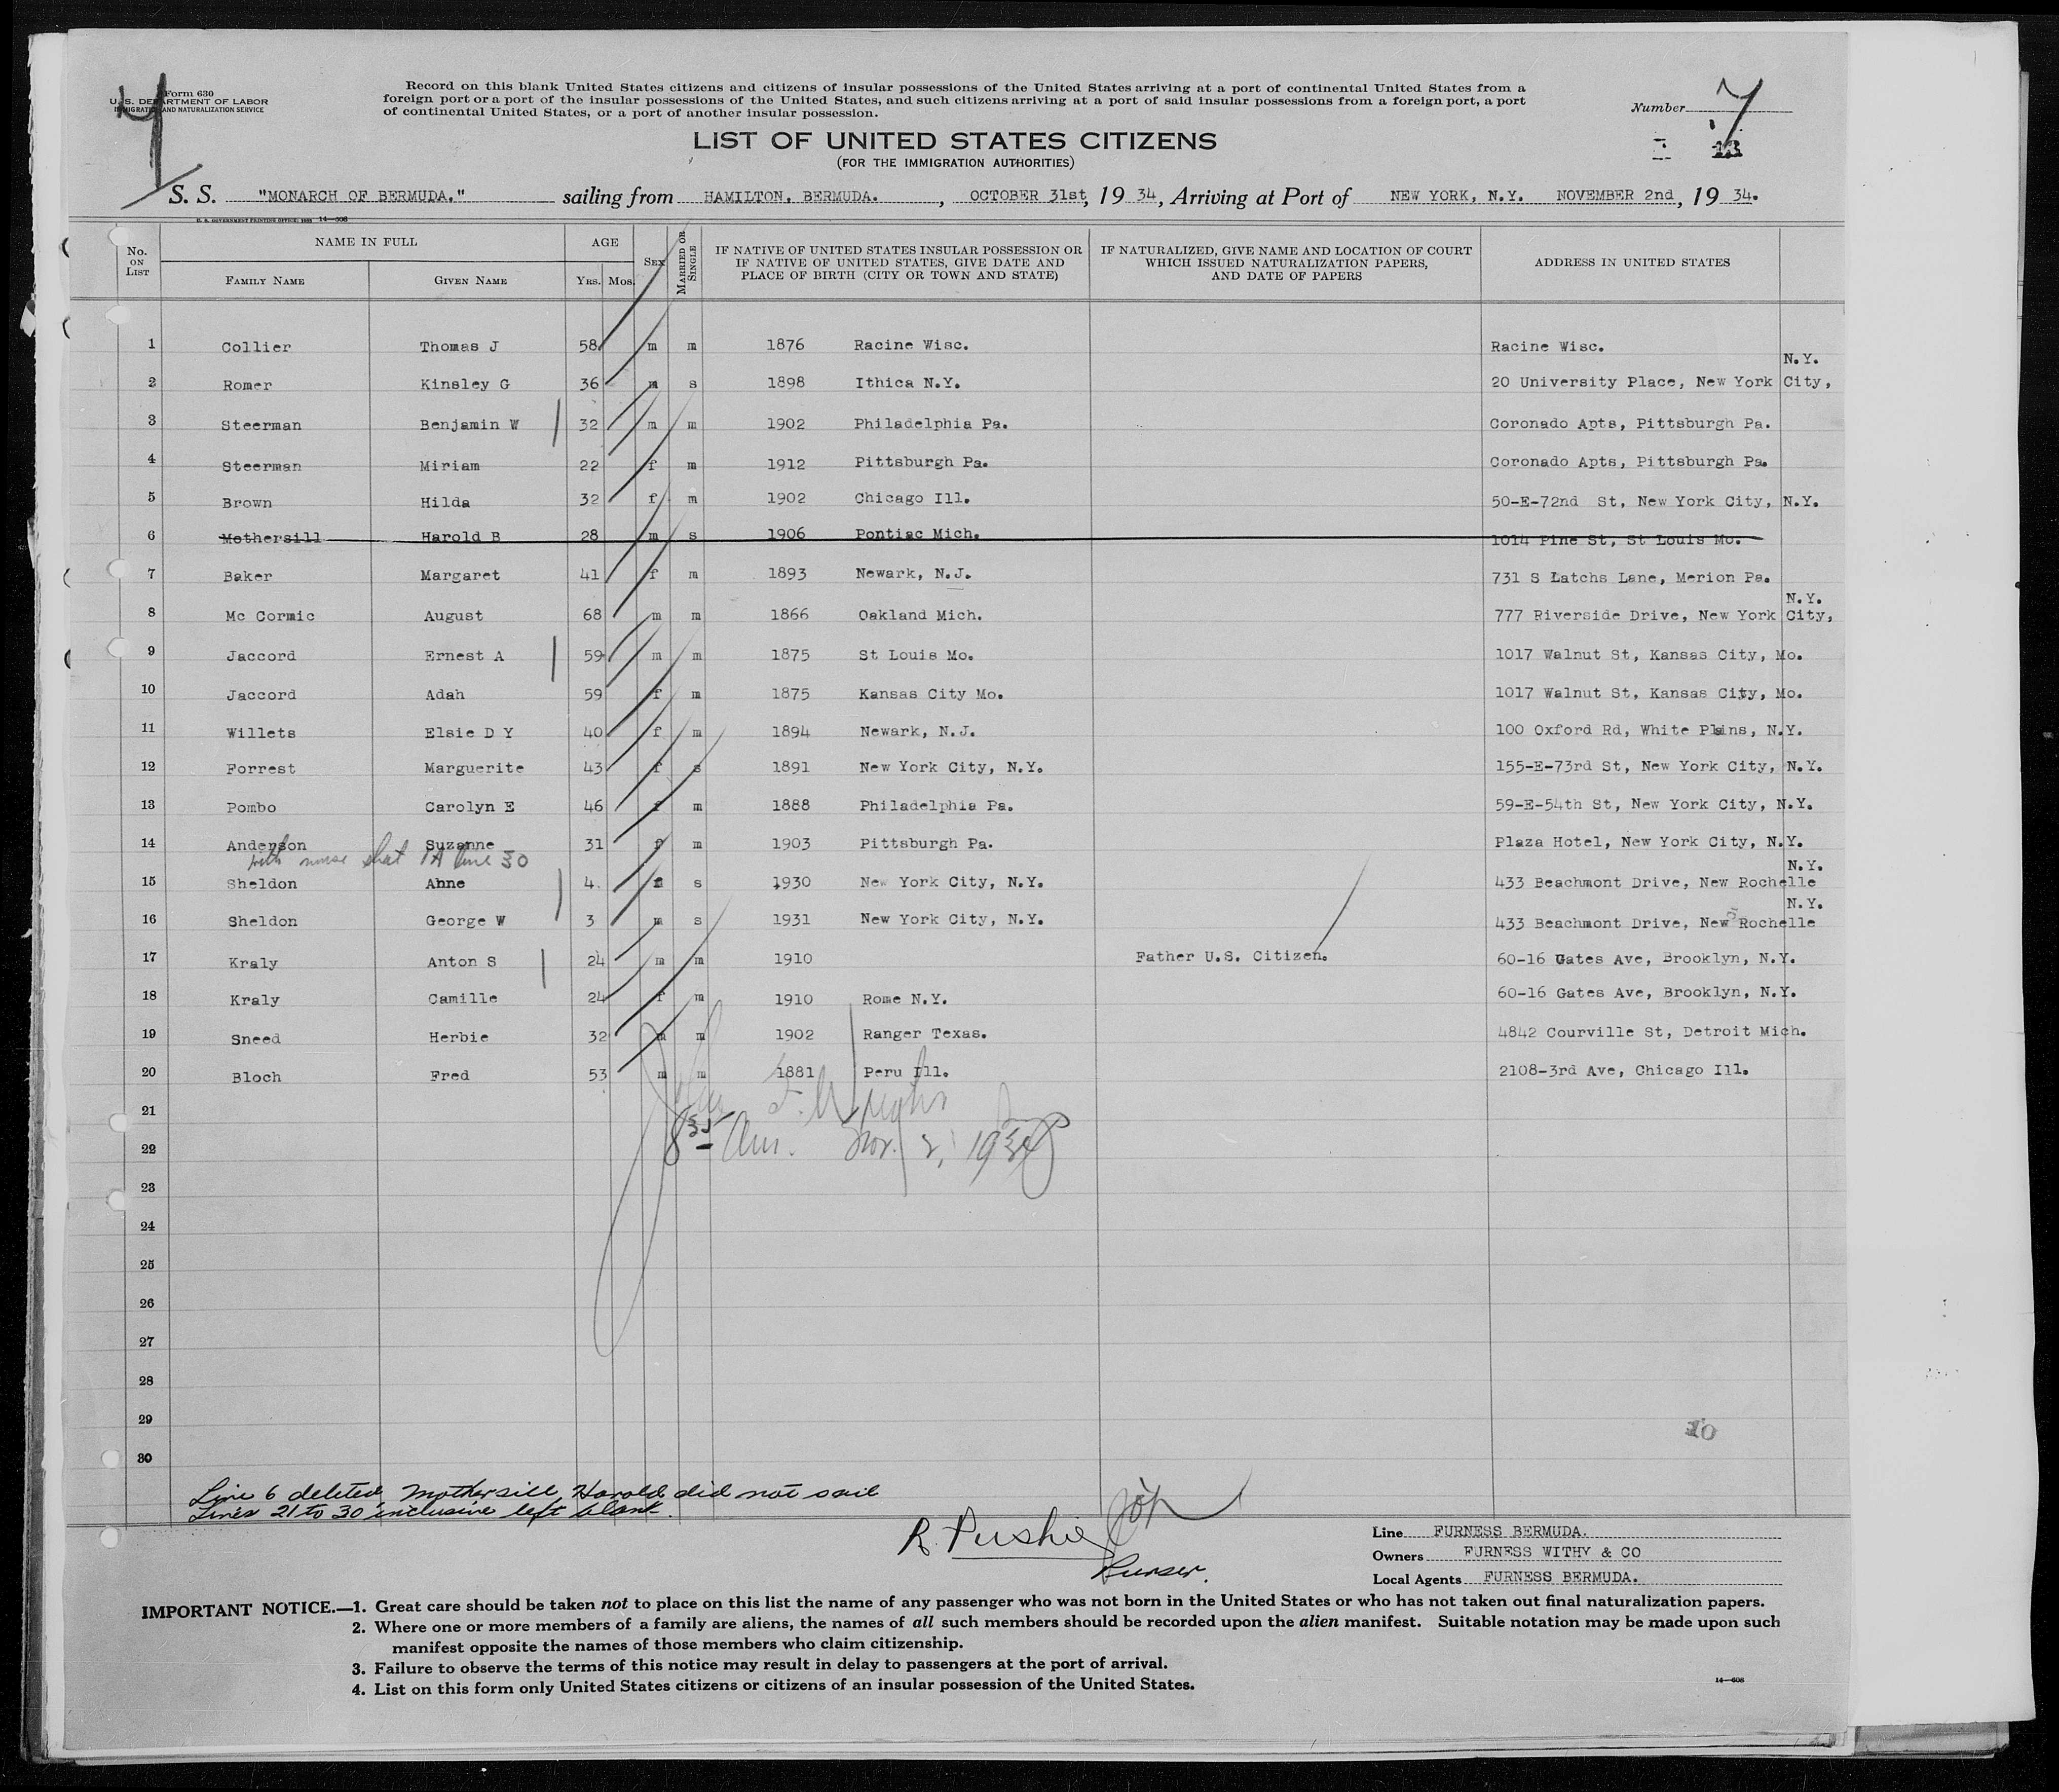 Form 630
U. S. DEPARTMENT OF LABOR
IMMIGRATION AND NATURALIZATION SERVICE
Record on this blank United States citizens and citizens of insular possessions of the United States arriving at a port of continental United States from a
foreign port or a port of the insular possessions of the United States, and such citizens arriving at a port of said insular possessions from a foreign port, a port
of continental United States, or a port of another insular possession.
Number 7
LIST OF UNITED STATES CITIZENS
(FOR THE IMMIGRATION AUTHORITIES)
S. S. "MONARCH OF BERMUDA." sailing from HAMILTON, BERMUDA. , OCTOBER 31st, 19 34, Arriving at Port of NEW YORK, N.Y. NOVEMBER 2nd, 19 34.
U. S. GOVERNMENT PRINTING OFFICE: 14—608
No. ON LIST NAME IN FULL FAMILY NAME GIVEN NAME AGE YRS. MOS. SEX MARRIED OR SINGLE IF NATIVE OF UNITED STATES INSULAR POSSESSION OR IF NATIVE OF UNITED STATES, GIVE DATE AND PLACE OF BIRTH (CITY OR TOWN AND STATE) IF NATURALIZED, GIVE NAME AND LOCATION OF COURT WHICH ISSUED NATURALIZATION PAPERS, AND DATE OF PAPERS ADDRESS IN UNITED STATES
1 Collier Thomas J 58 m m 1876 Racine Wisc. Racine Wisc.
2 Romer Kinsley G 36 m s 1898 Ithica N.Y. 20 University Place, New York City, N.Y.
3 Steerman Benjamin W 32 m m 1902 Philadelphia Pa. Coronado Apts, Pittsburgh Pa.
4 Steerman Miriam 22 f m 1912 Pittsburgh Pa. Coronado Apts, Pittsburgh Pa.
5 Brown Hilda 32 f m 1902 Chicago Ill. 50-E-72nd St, New York City, N.Y.
6 Mothersill Harold B 28 m s 1906 Pontiac Mich. 1014 Pine St, St Louis Mo.
7 Baker Margaret 41 f m 1893 Newark, N.J. 731 S Latchs Lane, Merion Pa.
8 Mc Cormic August 68 m m 1866 Oakland Mich. 777 Riverside Drive, New York City, N.Y.
9 Jaccord Ernest A 59 m m 1875 St Louis Mo. 1017 Walnut St, Kansas City, Mo.
10 Jaccord Adah 59 f m 1875 Kansas City Mo. 1017 Walnut St, Kansas City, Mo.
11 Willets Elsie D Y 40 f m 1894 Newark, N.J. 100 Oxford Rd, White Plains, N.Y.
12 Forrest Marguerite 43 f s 1891 New York City, N.Y. 155-E-73rd St, New York City, N.Y.
13 Pombo Carolyn E 46 f m 1888 Philadelphia Pa. 59-E-54th St, New York City, N.Y.
14 Anderson Suzanne 31 f m 1903 Pittsburgh Pa. Plaza Hotel, New York City, N.Y.
with nurse shet 1A line 30
15 Sheldon Anne 4 f s 1930 New York City, N.Y. 433 Beachmont Drive, New Rochelle N.Y.
16 Sheldon George W 3 m s 1931 New York City, N.Y. 433 Beachmont Drive, New Rochelle N.Y.
17 Kraly Anton S 24 m m 1910 Father U.S. Citizen. 60-16 Gates Ave, Brooklyn, N.Y.
18 Kraly Camille 24 f m 1910 Rome N.Y. 60-16 Gates Ave, Brooklyn, N.Y.
19 Sneed Herbie 32 m m 1902 Ranger Texas. 4842 Courville St, Detroit Mich.
20 Bloch Fred 53 m m 1881 Peru Ill. 2108-3rd Ave, Chicago Ill.
21
22 8 35 Am. Nov. 2, 1934
23
24
25
26
27
28
29
30
Line 6 deleted, Mothersill, Harold did not sail
Lines 21 to 30 inclusive left blank.
R. Pushie
Purser.
Line FURNESS BERMUDA.
Owners FURNESS WITHY & CO
Local Agents FURNESS BERMUDA.
IMPORTANT NOTICE.—1. Great care should be taken not to place on this list the name of any passenger who was not born in the United States or who has not taken out final naturalization papers.
2. Where one or more members of a family are aliens, the names of all such members should be recorded upon the alien manifest. Suitable notation may be made upon such
manifest opposite the names of those members who claim citizenship.
3. Failure to observe the terms of this notice may result in delay to passengers at the port of arrival.
4. List on this form only United States citizens or citizens of an insular possession of the United States.
14—608